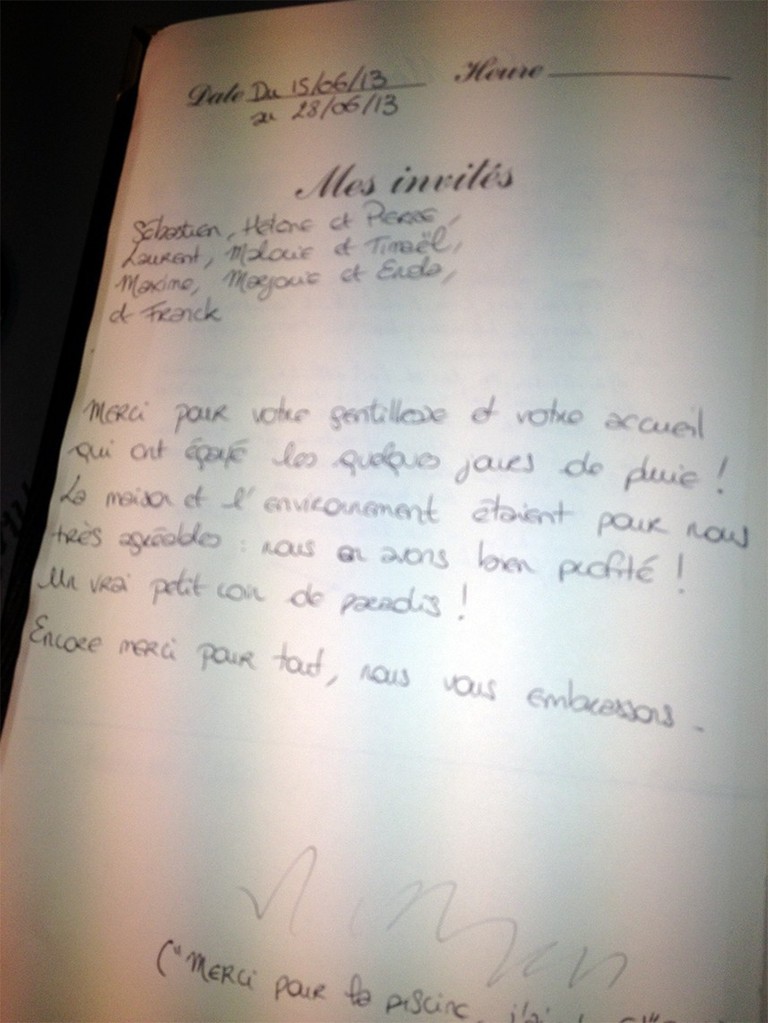 Date Du 15/06/13 Heure
au 28/06/13
Mes invités
Sébastien, Hélène et Pierre,
Laurent, Malorie et Timaël,
Maxime, Marjorie et Enola,
et Franck
Merci pour votre gentillesse et votre accueil
qui ont égayé les quelques jours de pluie !
La maison et l'environnement étaient pour nous
très agréables : nous en avons bien profité !
Un vrai petit coin de paradis !
Encore merci pour tout, nous vous embrassons.
("Merci pour la piscine, j'ai